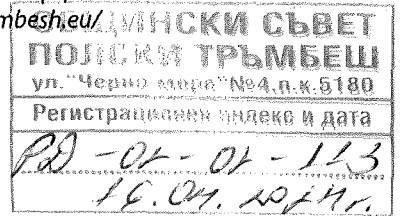 mbesh.eu/
ОБЩИНСКИ СЪВЕТ
ПОЛСКИ ТРЪМБЕШ
ул."Черно море"№4,п.к.5180
Регистрационен индекс и дата
РД-01-01-113
16.04.2014г.